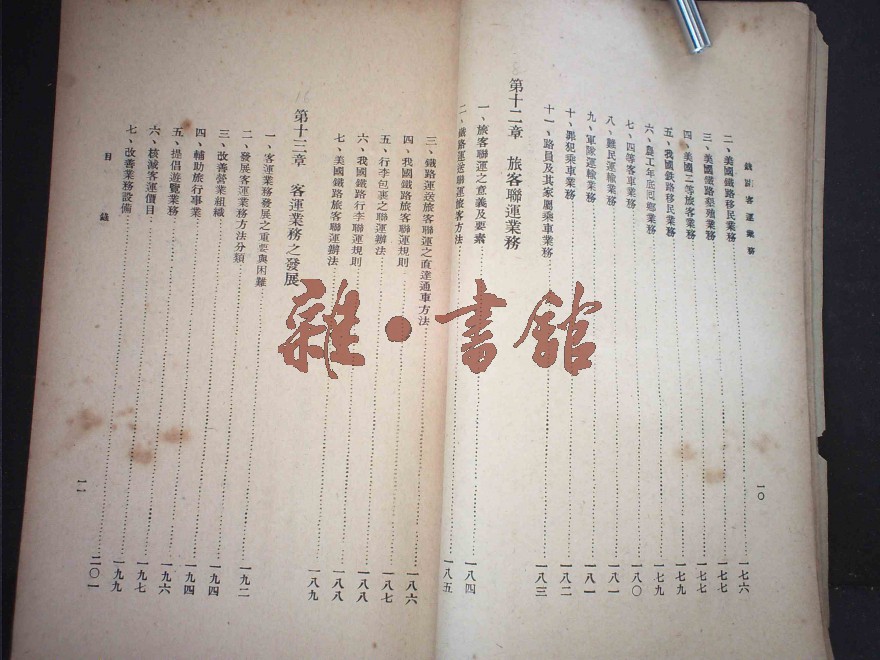 鐵路客運業務
一〇
二、美國鐵路移民業務…一七六
三、美國鐵路墾殖業務…一七七
四、美國二等旅客業務…一七七
五、我國鉄路移民業務…一七九
六、農工年底回鄉業務…一七九
七、四等客車業務…一八〇
八、難民運輸業務…一八一
九、軍隊運輸業務…一八一
十、罪犯乘車業務…一八二
十一、路員及其家屬乘車業務…一八三
第十二章 旅客聯運業務
一、旅客聯運之意義及要素…一八四
二、鐵路運送聯運旅客方法…一八五
三、鐵路運送旅客聯運之直達通車方法…一八六
四、我國鐵路旅客聯運規則
五、行李包裹之聯運辦法…一八七
六、我國鐵路行李聯運規則…一八八
七、美國鐵路旅客聯運辦法…一八八
第十三章 客運業務之發展…一八九
一、客運業務發展之重要與困難
二、發展客運業務方法分類…一九二
三、改善營業組織…一九四
四、輔助旅行事業…一九四
五、提倡遊覽業務…一九六
六、核減客運價目…一九七
七、改善業務設備…一九九
二〇一
目錄
一一
雜·書館